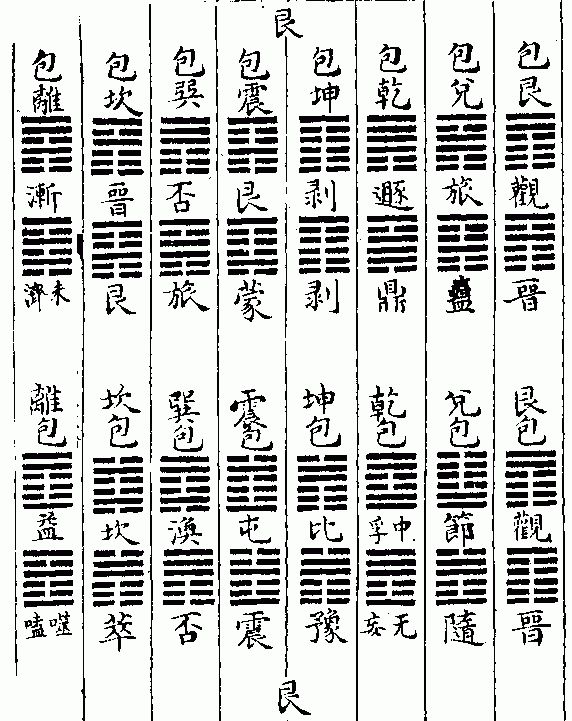 艮
包艮 觀 晉
包兌 旅 蠱
包乾 遯 鼎
包坤 剥 剥
包震 艮 蒙
包巽 否 旅
包坎 晉 艮
包離 漸 未濟
艮包 觀 晉
兌包 節 隨
乾包 中孚 无妄
坤包 比 豫
震包 屯 震
巽包 渙 否
坎包 坎 萃
離包 益 噬嗑
艮